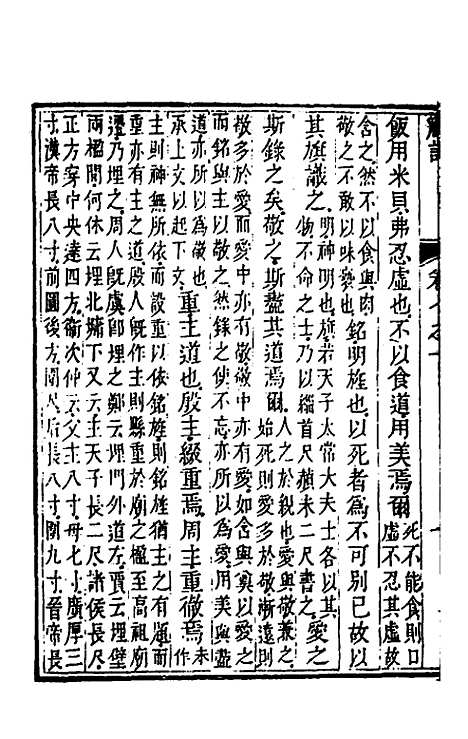 飯用米貝弗忍虛也不以食道用美焉爾死不能食則口
虛不忍其虛故
含之然不以食與肉
敬之不敢以味褻也銘明旌也以死者爲不可別已故以
其旗識之明神明也旌若天子太常大夫士各以其
物不命之士乃以緇首尺䞓末二尺書之愛之
斯錄之矣敬之斯盡其道焉爾人之於親也愛與敬兼之
始死則愛多於敬漸遠則
敬多於愛而愛中亦有敬敬中亦有愛如含與奠以愛之
而銘與主以敬之然錄之使不忘亦以愛用美與盡
道亦所以爲敬也
承上文以起下文重主道也殷主綴重焉周主重徹焉未
作
主則神無所依而設重以依銘旌則銘旌猶主之有題而
重亦有主之道殷人既作主則縣重於廟之楹至高祖廟
遷乃埋之周人既虞卽埋之鄭云埋門外道左賈云埋壁
兩楹間何休云埋北墉下又云主天子長二尺諸侯長尺
正方穿中央達四方衞次仲云父主八寸母七寸廣厚三
寸漢帝長八寸前圓後方圍八后長八寸圍九寸晉帝長